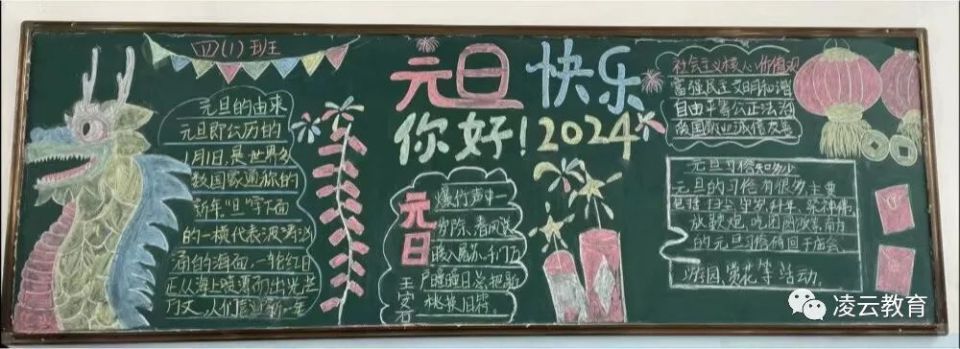 四(1)班
元旦快乐
你好!2024
元旦的由来
元旦即公历的
1月1日,是世界多
数国家通称的
新年"旦"字下面
的一横代表波涛汹
涌的海面,一轮红日
正从海上喷薄而出光芒
万丈,人们
元日
王安石
爆竹声中一
岁除,春风送
暖入屠苏,千门万
户曈曈日总把新
桃换旧符。
社会主义核心价值观
富强民主文明和谐
自由平等公正法治
爱国敬业诚信友善
元旦习俗知多少
元旦的习俗有很多主要
包括扫尘
放鞭炮,吃团圆饭等,南方
的元旦习俗
游园,赏花等活动.
凌云教育